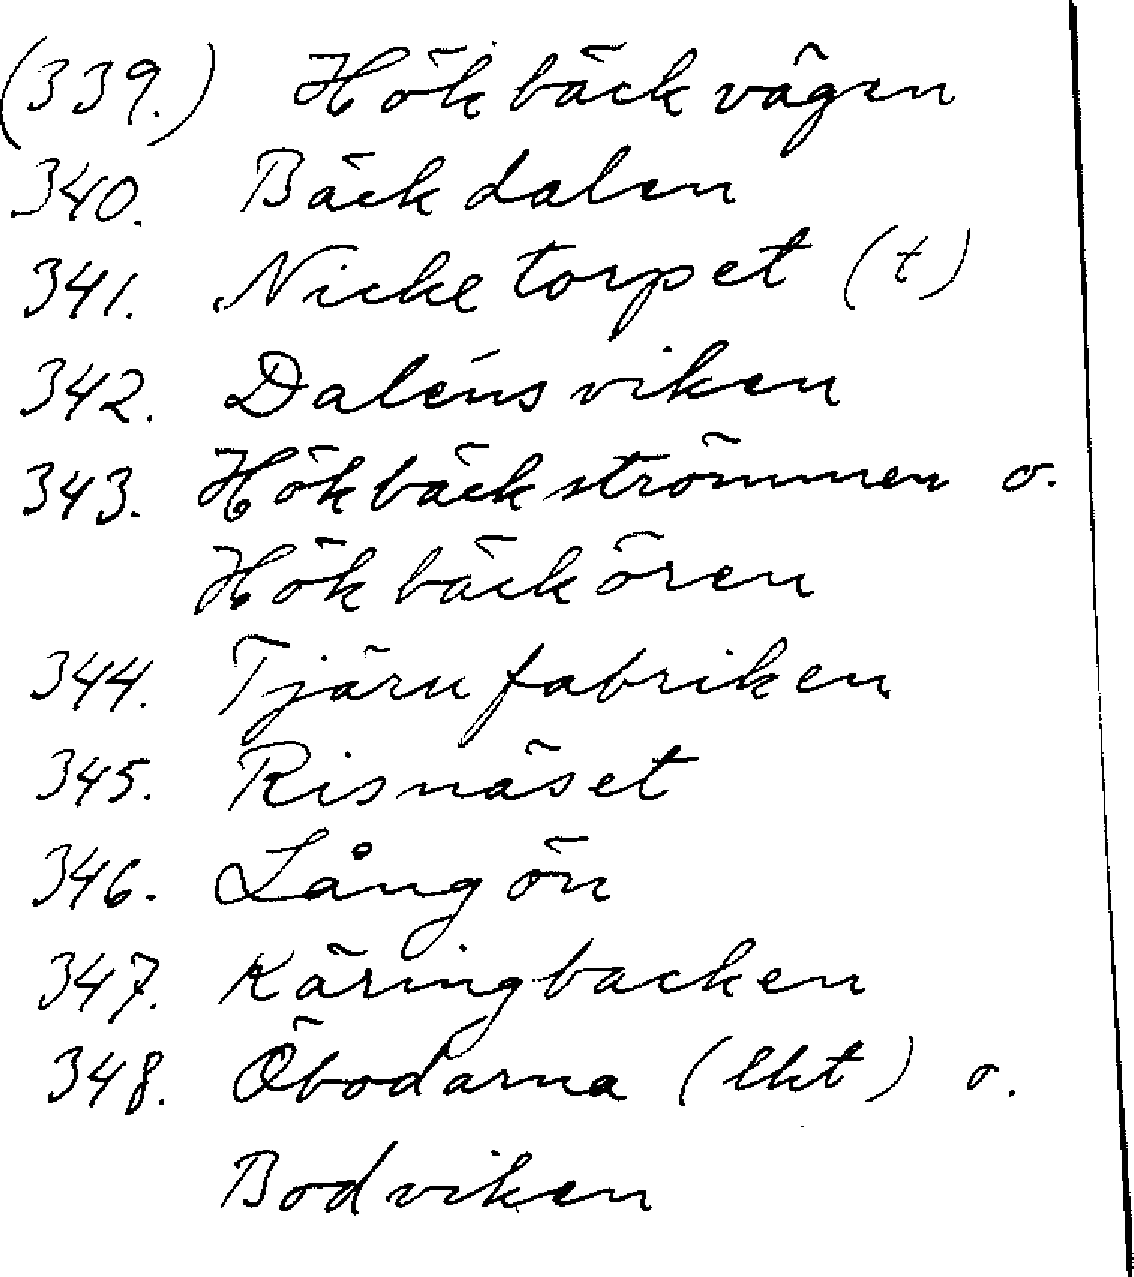 (339.) Hökbäckvägen
340. Bäckdalen
341. Nicketorpet (t)
342. Dalénsviken
343. Hökbäckströmmen o.
Hökbäckören
344. Tjärufabriken
345. Risnäset
346. Långön
347. Käringbacken
348. Öbodarna (lkt) o.
Bodviken